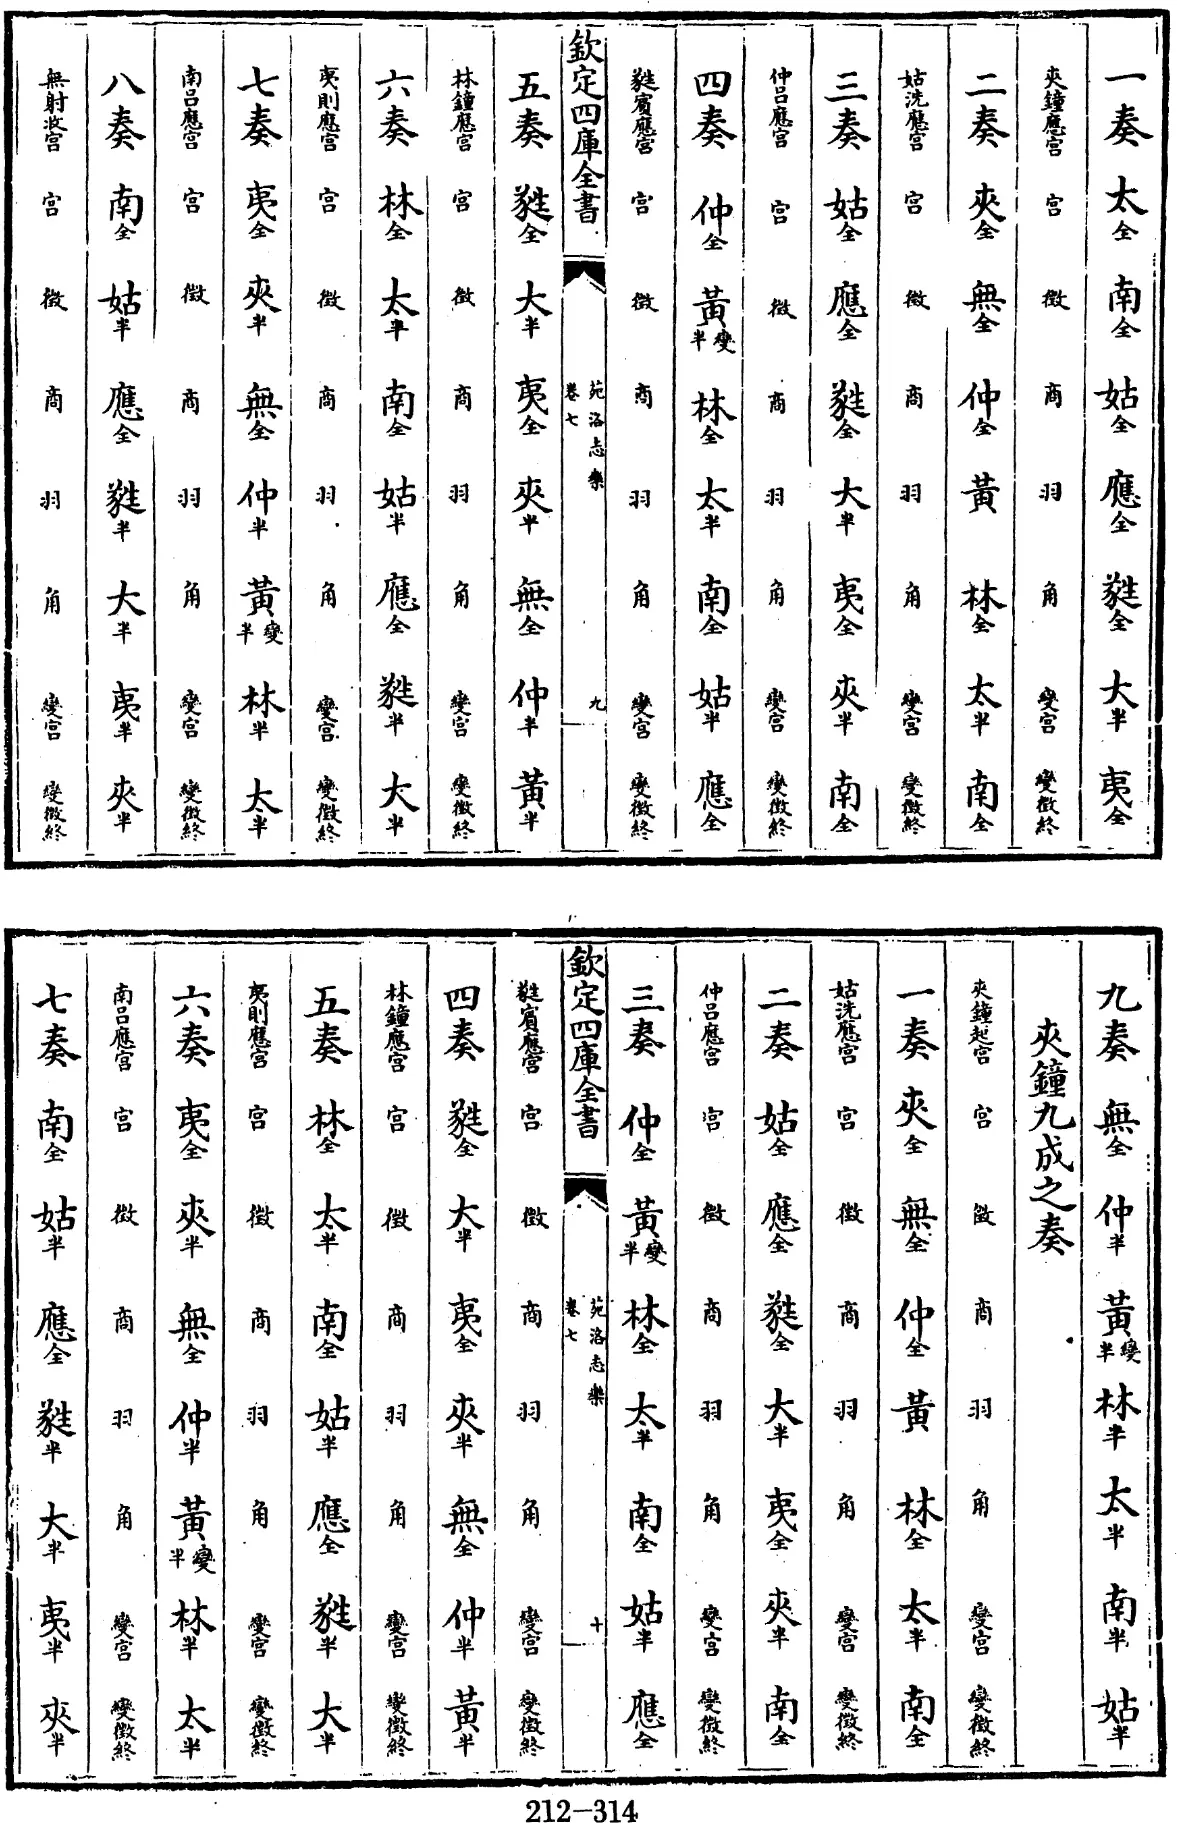 一奏 太全 南全 姑全 應全 蕤全 大半 夷全
夾鐘應宮 宮 徵 商 羽 角 變宮 變徵終
二奏 夾全 無全 仲全 黃 林全 太半 南全
姑洗應宮 宮 徵 商 羽 角 變宮 變徵終
三奏 姑全 應全 蕤全 大半 夷全 夾半 南全
仲呂應宮 宮 徵 商 羽 角 變宮 變徵終
四奏 仲全 黃變半 林全 太半 南全 姑半 應全
蕤賓應宮 宮 徵 商 羽 角 變宮 變徵終
欽定四庫全書 苑洛志樂 卷七 九
五奏 蕤全 大半 夷全 夾半 無全 仲半 黃半
林鐘應宮 宮 徵 商 羽 角 變宮 變徵終
六奏 林全 太半 南全 姑半 應全 蕤半 大半
夷則應宮 宮 徵 商 羽 角 變宮 變徵終
七奏 夷全 夾半 無全 仲半 黃變半 林半 太半
南呂應宮 宮 徵 商 羽 角 變宮 變徵終
八奏 南全 姑半 應全 蕤半 大半 夷半 夾半
無射收宮 宮 徵 商 羽 角 變宮 變徵終
九奏 無全 仲半 黃變半 林半 太半 南半 姑半
夾鐘九成之奏
夾鐘起宮 宮 徵 商 羽 角 變宮 變徵終
一奏 夾全 無全 仲全 黃 林全 太半 南全
姑洗應宮 宮 徵 商 羽 角 變宮 變徵終
二奏 姑全 應全 蕤全 大半 夷全 夾半 南全
仲呂應宮 宮 徵 商 羽 角 變宮 變徵終
三奏 仲全 黃變半 林全 太半 南全 姑半 應全
欽定四庫全書 苑洛志樂 卷七 十
蕤賓應宮 宮 徵 商 羽 角 變宮 變徵終
四奏 蕤全 大半 夷全 夾半 無全 仲半 黃半
林鐘應宮 宮 徵 商 羽 角 變宮 變徵終
五奏 林全 太半 南全 姑半 應全 蕤半 大半
夷則應宮 宮 徵 商 羽 角 變宮 變徵終
六奏 夷全 夾半 無全 仲半 黃變半 林半 太半
南呂應宮 宮 徵 商 羽 角 變宮 變徵終
七奏 南全 姑半 應全 蕤半 大半 夷半 夾半
212-314